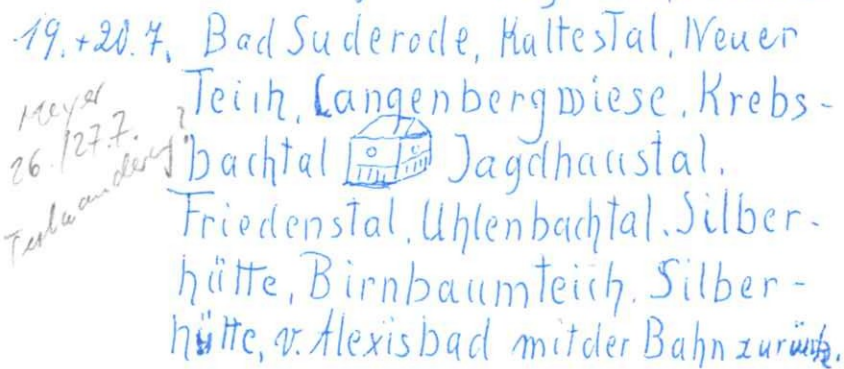 19.+20.7. Bad Suderode, Kaltestal, Neuer
Teich, Langenbergwiese, Krebs-
bachtal Jagdhaustal,
Friedenstal, Uhlenbachtal, Silber-
hütte, Birnbaumteich, Silber-
hütte, v. Alexisbad mit der Bahn zurück.
Meyer
26./27.7.
Teilwanderung?